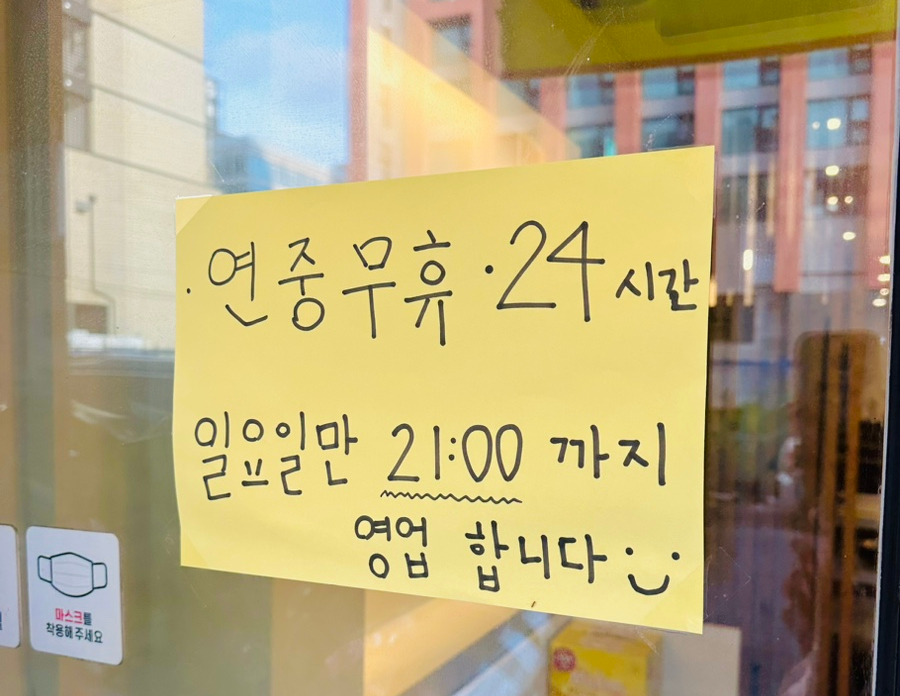 ·연중무휴 ·24시간
일요일만 21:00 까지
영업 합니다
마스크를
착용해주세요